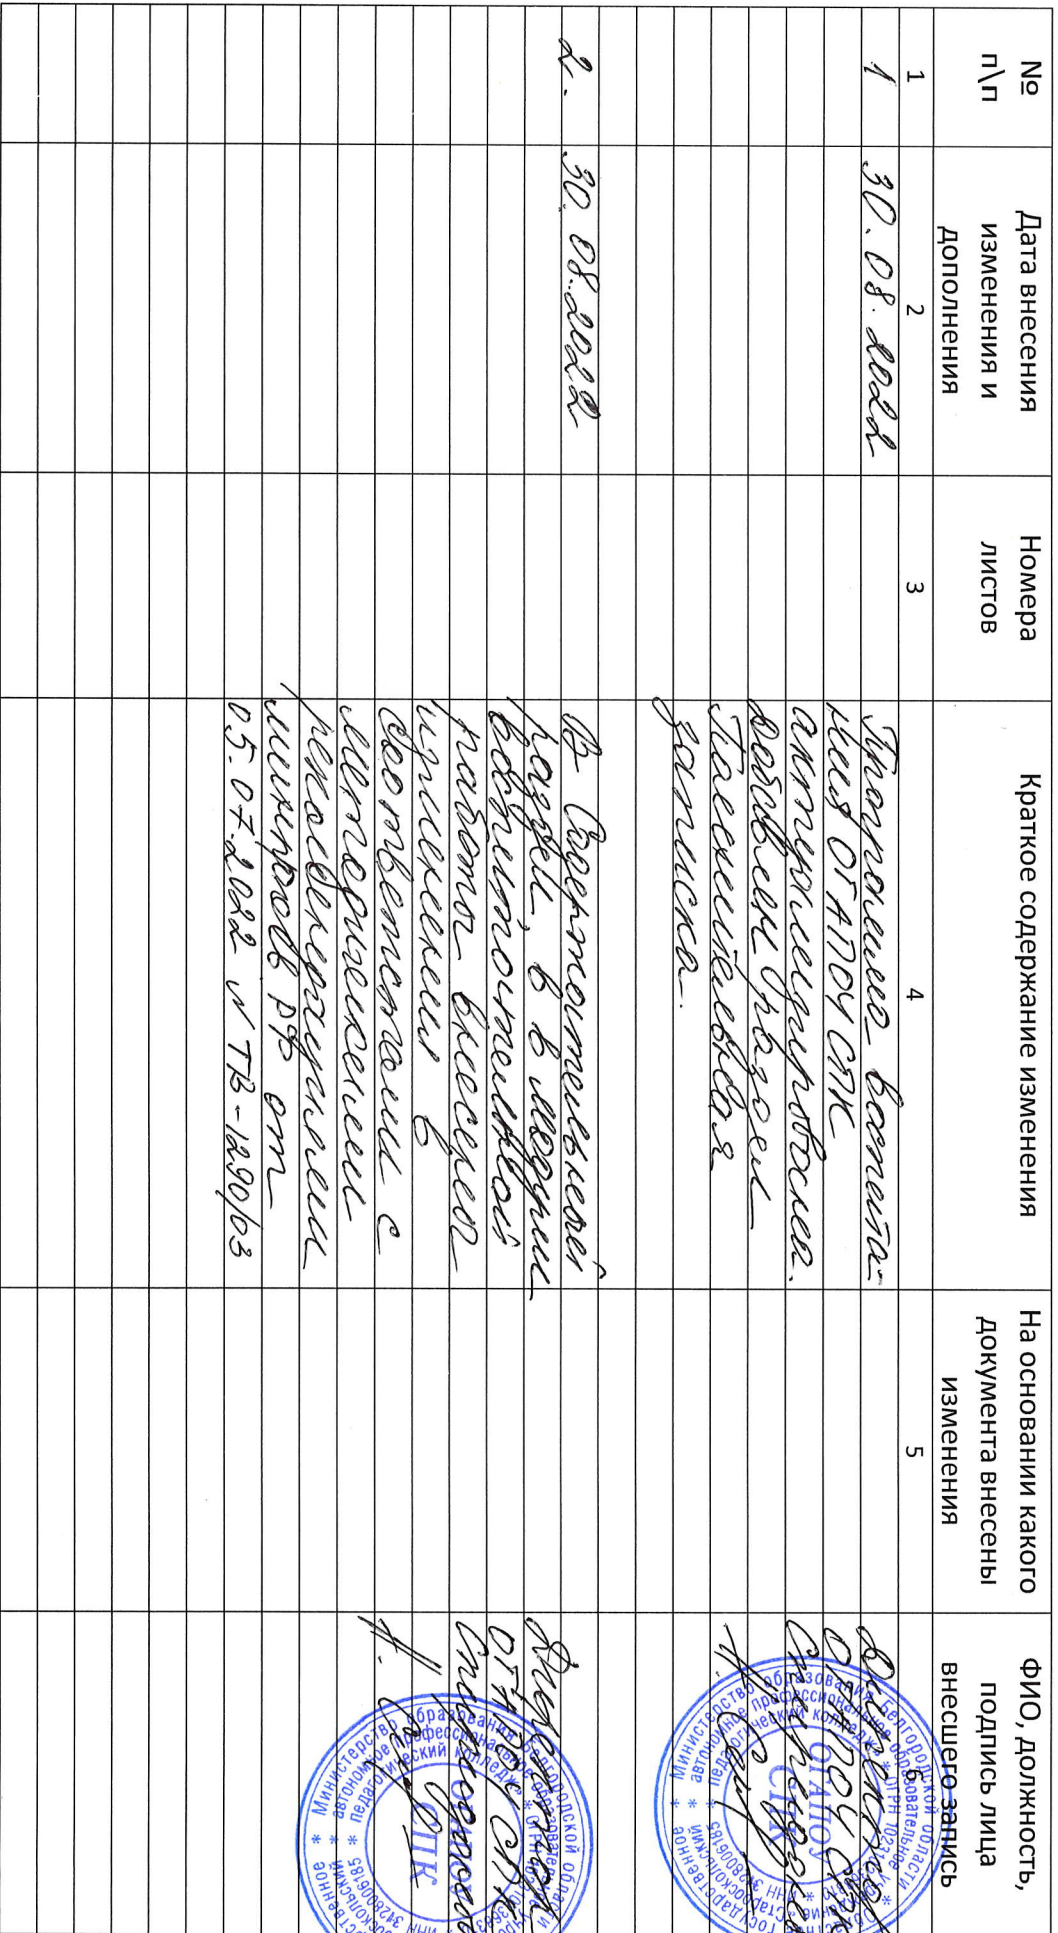 №
п\п
Дата внесения
изменения и
дополнения
Номера
листов
Краткое содержание изменения
На основании какого
документа внесены
изменения
ФИО, должность,
подпись лица
внесшего запись
1
2
3
4
5
6
1
30.08.2022
Программа воспита-
ния ОГАПОУ СПК
актуализирована.
добавлен раздел
Пояснительная
записка.
Директор
ОГАПОУ СПК
Н.
2.
30.08.2022
В Содержательный
раздел, в модули
воспитательной
работы внесены
изменения в
соответствии с
методическими
рекомендациями
минпросв РФ от
05.07.2022 N ТВ-1290/03
Директор
ОГАПОУ СПК
Н.
Министерство образования Белгородской области
автономное профессиональное образовательное
педагогический колледж
ОГАПОУ
СПК
Министерство образования Белгородской области
автономное профессиональное образовательное
педагогический колледж
СПК